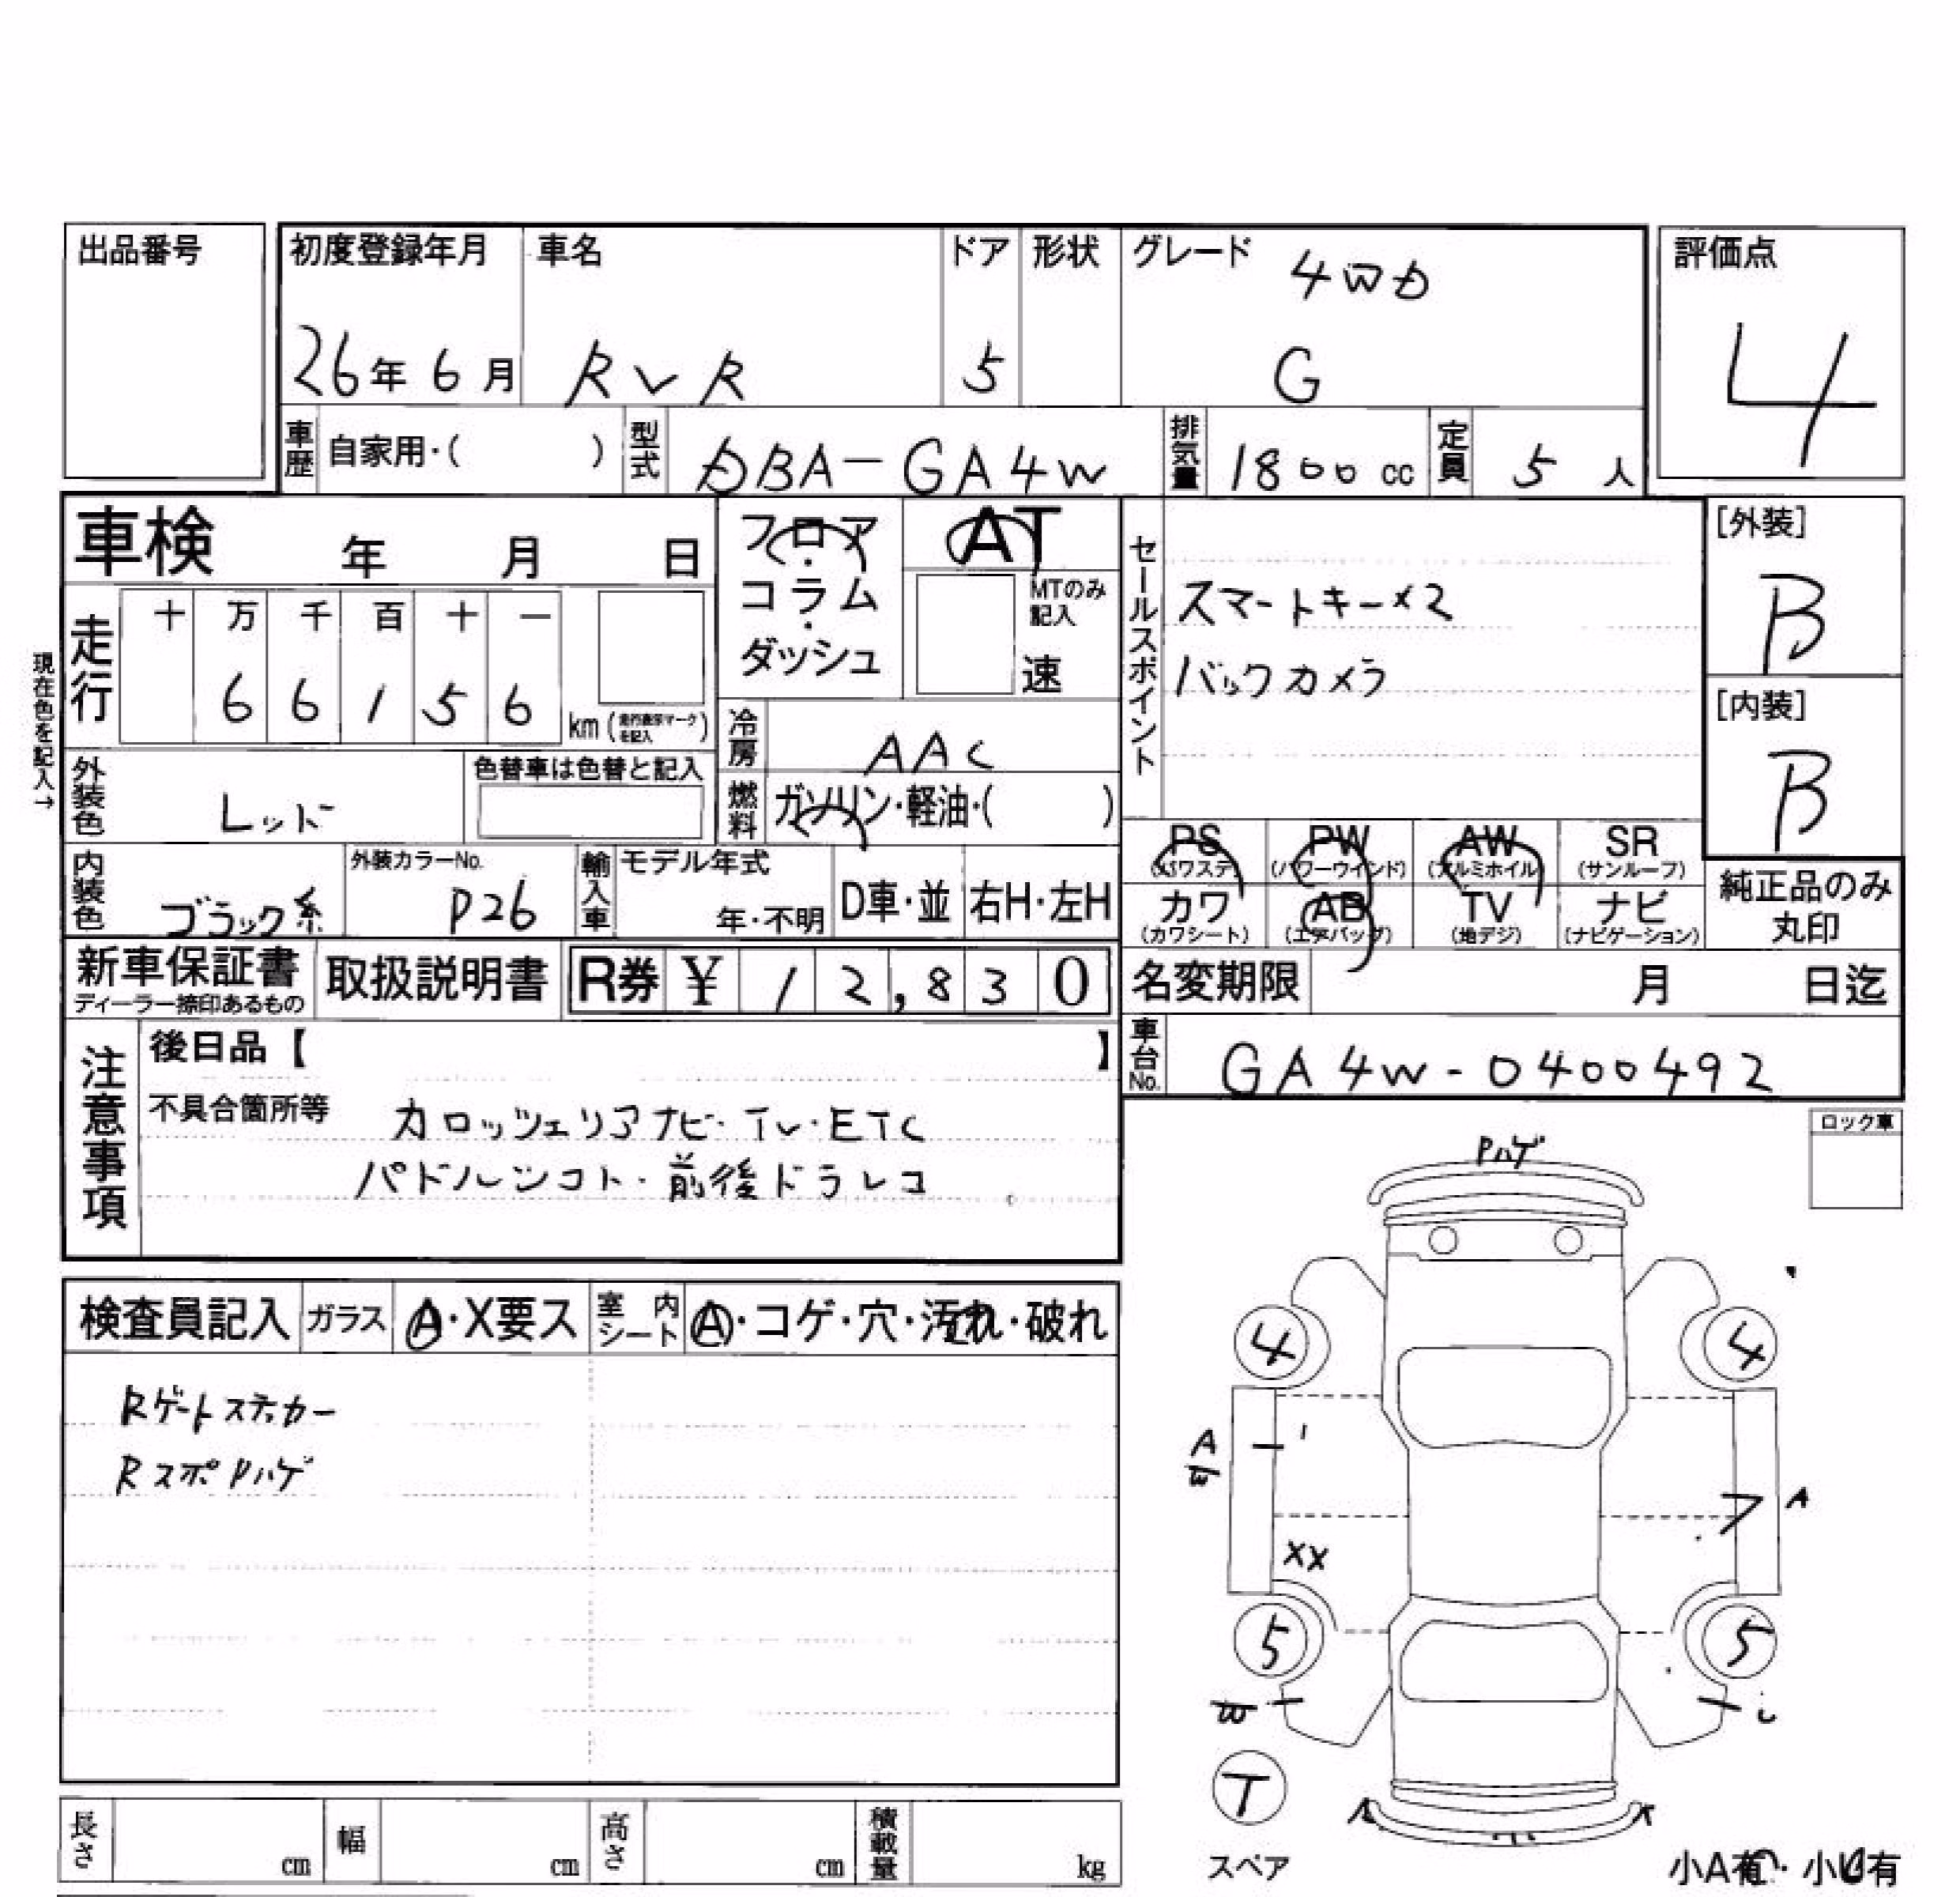 出品番号
初度登録年月 車名 ドア 形状 グレード 評価点
4WD
26年6月 RVR 5 G 4
車歴 自家用・( ) 型式 DBA-GA4W 排気量 1800cc 定員 5人
車検 年 月 日
フロア・コラム・ダッシュ
AT
MTのみ記入
速
走行 十 万 千 百 十 一
6 6 1 5 6 km (走行表示マークを記入)
現在色を記入→
冷房 AAC
外装色 レッド
色替車は色替と記入
燃料 ガソリン・軽油・( )
内装色 ブラック系
外装カラーNo. P26
輸入車 モデル年式 年・不明 D車・並 右H・左H
セールスポイント
スマートキー×2
バックカメラ
[外装] B
[内装] B
PS (パワステ) PW (パワーウインド) AW (アルミホイル) SR (サンルーフ)
カワ (カワシート) AB (エアバッグ) TV (地デジ) ナビ (ナビゲーション)
純正品のみ丸印
新車保証書 ディーラー捺印あるもの 取扱説明書 R券 ¥ 12,830
名変期限 月 日迄
車台No. GA4W-0400492
注意事項
後日品【 】
不具合箇所等
カロッツェリアナビ・TV・ETC
パドルシフト・前後ドラレコ
ロック車
検査員記入 ガラス A・X要ス 室内シート A・コゲ・穴・汚れ・破れ
Rゲートステッカー
RスポPハゲ
Pハゲ
4 4
A
A
XX
5 5
T
スペア
小A有・小U有
長さ cm 幅 cm 高さ cm 積載量 kg